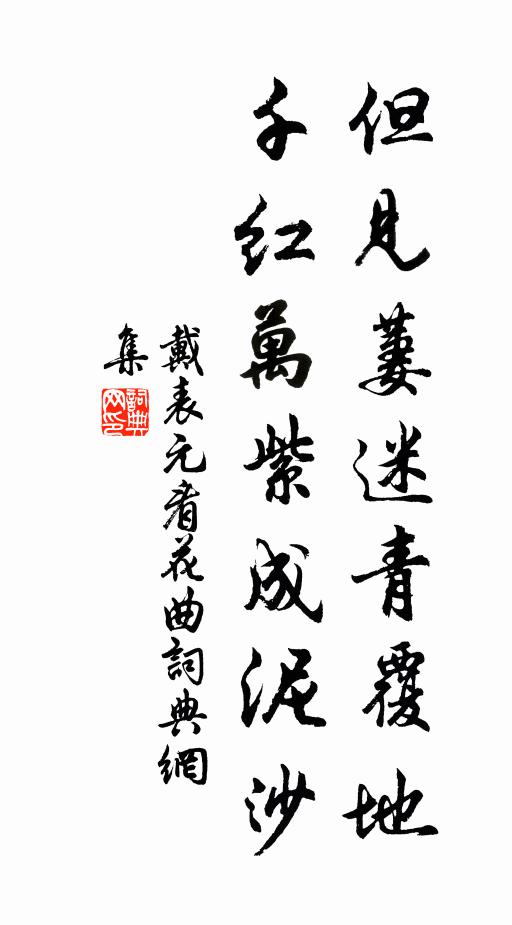 但見萋迷青覆地
千紅萬紫成泥沙
戴表元看花曲詞典網
集
詞典
网印